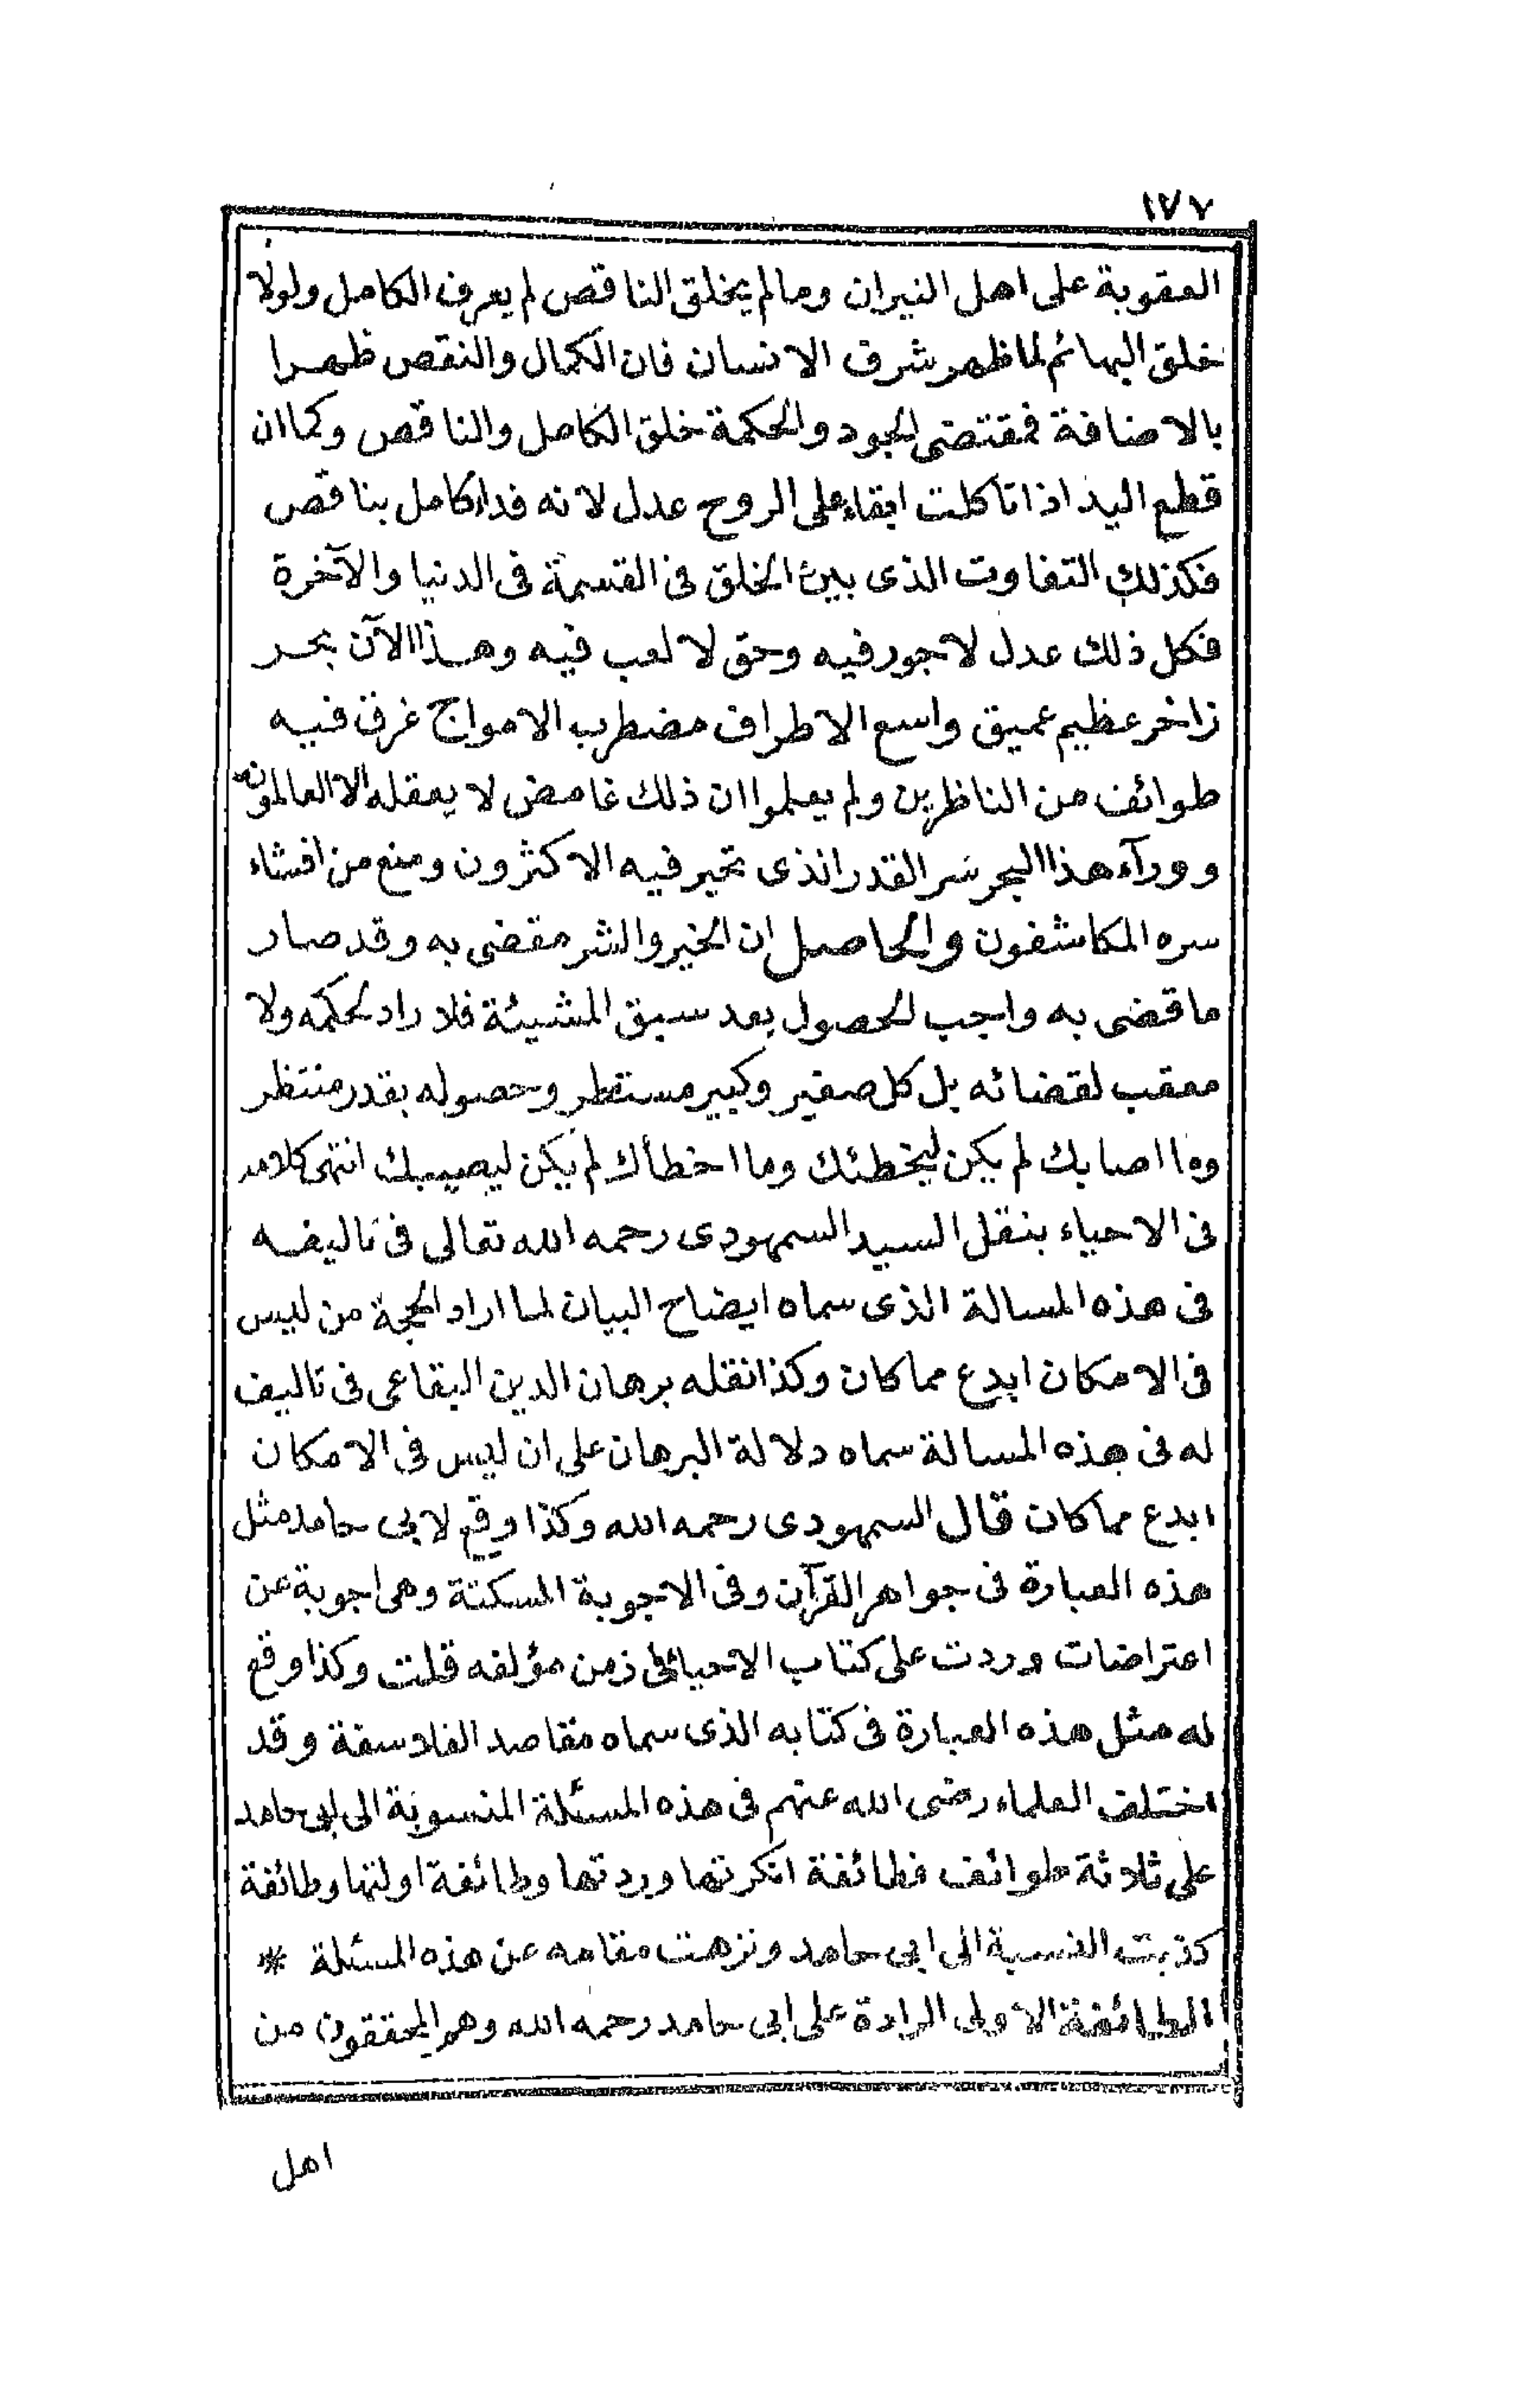 ١٧٧
العقوبة على اهل النيران وما لم يخلق الناقص لم يعرف الكامل ولولا
خلق البهائم لما ظهر شرف الانسان فان الكمال والنقص ظهرا
بالاضافة فمقتضى الجود والحكمة خلق الكامل والناقص وكما ان
قطع اليد اذا تاكلت ابقاء على الروح عدل لانه فداء كامل بناقص
فكذلك التفاوت الذى بين الخلق فى القسمة فى الدنيا والآخرة
فكل ذلك عدل لا جور فيه وحق لا لعب فيه وهذا الآن بحر
زاخر عظيم عميق واسع الاطراف مضطرب الامواج غرق فيه
طوائف من الناظرين ولم يعلموا ان ذلك غامض لا يعقله الا العالمون
وورآء هذا البحر سر القدر الذى تحير فيه الاكثرون ومنع من افشاء
سره المكاشفون والحاصل ان الخير والشر مقضى به وقد صار
ما قضى به واجب الحصول بعد سبق المشيئة فلا راد لحكمه ولا
معقب لقضائه بل كل صغير وكبير مستطر وحصوله بقدر منتظر
وما اصابك لم يكن ليخطئك وما اخطأك لم يكن ليصيبك انتهى كلامه
فى الاحياء بنقل السيد السمهودى رحمه الله تعالى فى تاليفه
فى هذه المسالة الذى سماه ايضاح البيان لما اراد الحجة من ليس
فى الامكان ابدع مما كان وكذا نقله برهان الدين البقاعى فى تاليف
له فى هذه المسالة سماه دلالة البرهان على ان ليس فى الامكان
ابدع مما كان قال السمهودى رحمه الله وكذا وقع لابى حامد مثل
هذه العبارة فى جواهر القرآن وفى الاجوبة المسكتة وهى اجوبة عن
اعتراضات وردت على كتاب الاحياء فى زمن مؤلفه قلت وكذا وقع
له مثل هذه العبارة فى كتابه الذى سماه مقاصد الفلاسفة وقد
اختلف العلماء رضى الله عنهم فى هذه المسئلة المنسوبة الى ابى حامد
على ثلاثة طوائف فطائفة انكرتها وردتها وطائفة اولتها وطائفة
كذبت النسبة الى ابى حامد ونزهت مقامه عن هذه المسئلة *
الطائفة الاولى الرادة على ابى حامد رحمه الله وهم المحققون من
اهل